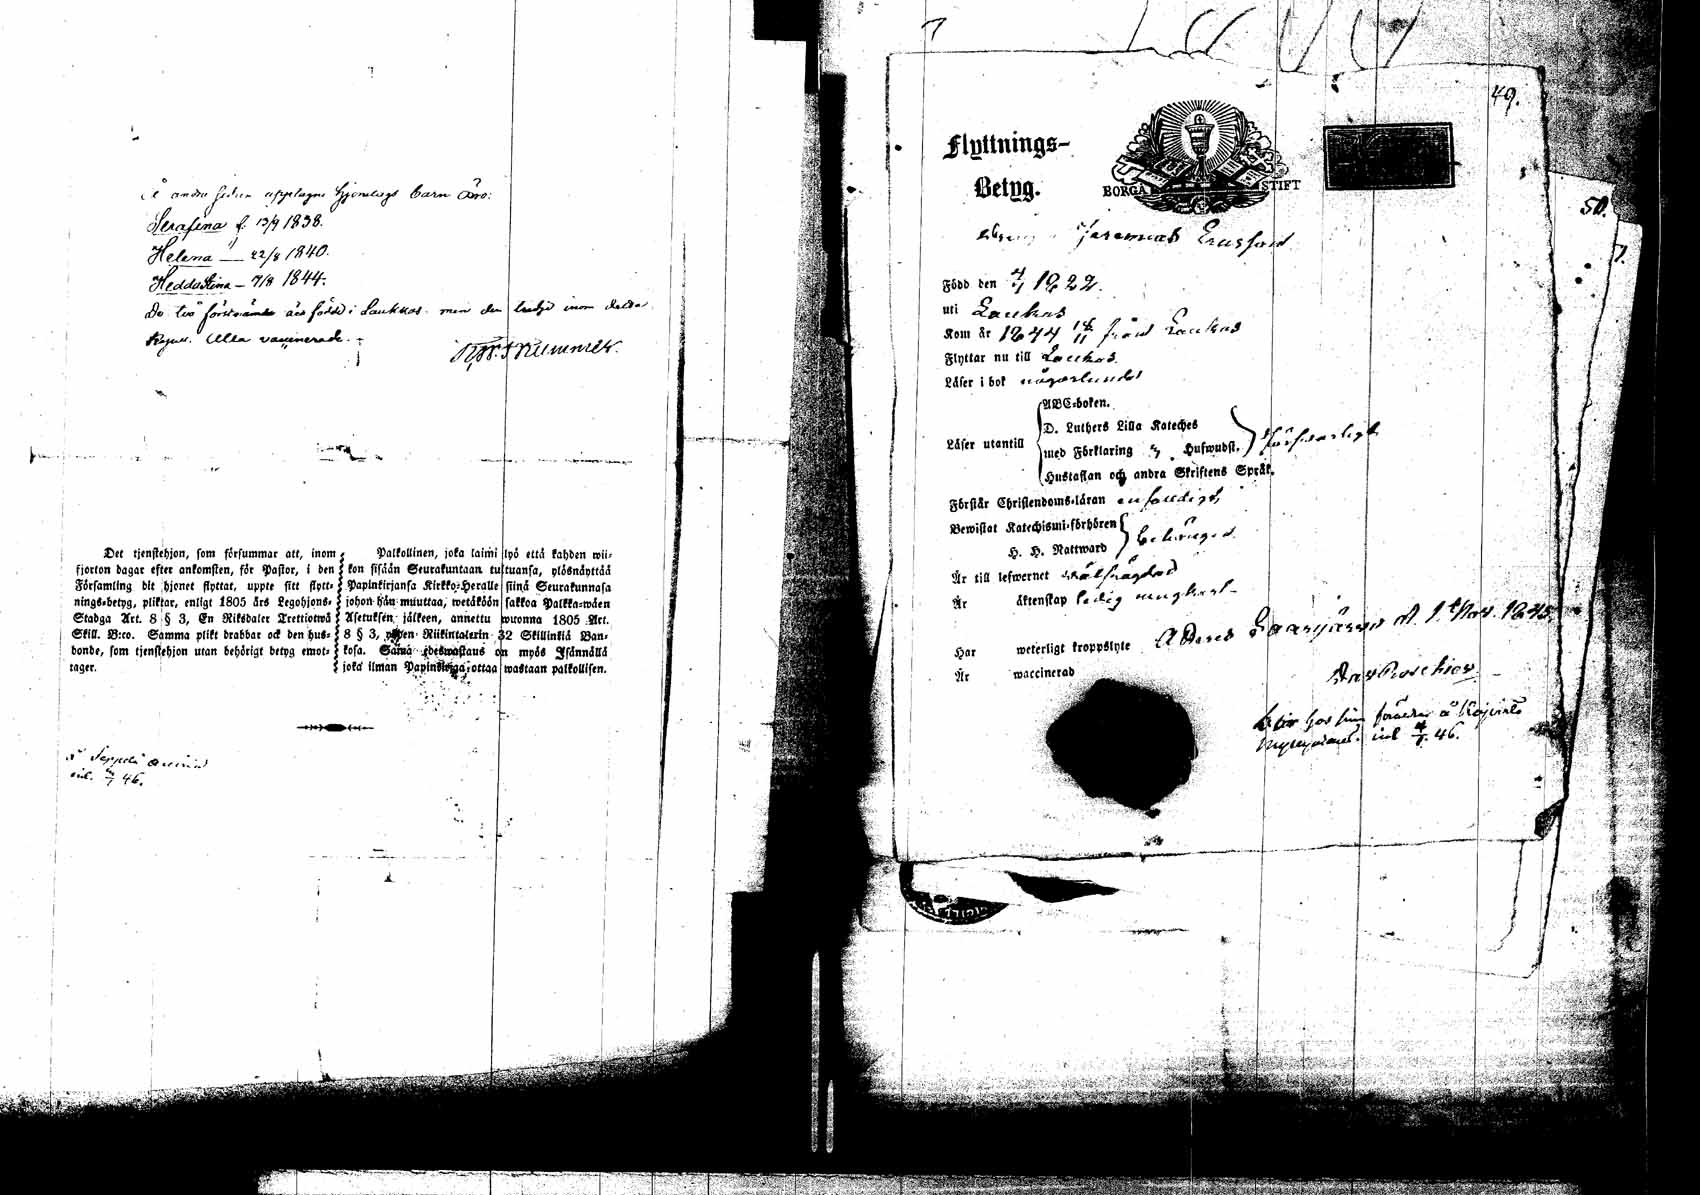 Å andra sidan upptagne hjonelags barn äro:
Serafina f. 13/9 1838.
Helena — 22/8 1840.
Hedda Stina — 7/8 1844.
De två förstnämde äro födde i Laukkas men den tredje inom detta
Alla vaccinerade.
Det tjenstehjon, som försummar att, inom
fjorton dagar efter ankomsten, för Pastor, i den
Församling dit hjonet flyttat, uppte sitt flytt-
nings-betyg, pliktar, enligt 1805 års Legohjons-
Stadga Art. 8 § 3, En Riksdaler Trettiotwå
Skill. B:co. Samma plikt drabbar ock den hus-
bonde, som tjenstehjon utan behörigt betyg emot-
tager.
Palkollinen, joka laimi lyö että kahden wii-
kon sisään Seurakuntaan tultuansa, ylösnäyttää
Papinkirjansa Kirkko-Heralle siinä Seurakunnasa
johon hän muuttaa, wetäköön sakkoa Palkka-wäen
Asetuksen jälkeen, annettu wuonna 1805 Art.
8 § 3, yhden Riikintalerin 32 Skillinkiä Ban-
kosa. Sama edeswastaus on myös Isännällä
joka ilman Papinkirjaa ottaa wastaan palkollisen.
46.
49.
50.
Flyttnings-
Betyg.
BORGÅ STIFT
Jeremias
Född den 4/1 1822.
uti Laukas
Kom år 1844 18/11 från Laukas
Flyttar nu till Laukas.
Läser i bok någorlunda
Läser utantill
ABC-boken.
D. Luthers Lilla Kateches
med Förklaring Hufwudst.
Hustaflan och andra Skriftens Språk.
försvarligt
Förstår Christendoms-läran enfaldigt,
Bewistat Katechismi-förhören
H. H. Nattward
behörigen
Är till lefwernet välfrägdad
Är äktenskap ledig ungkarl.
Har weterligt kroppslyte
Är waccinerad
Saarijärvi d. 1 Nov. 1845.
hos sin
46.